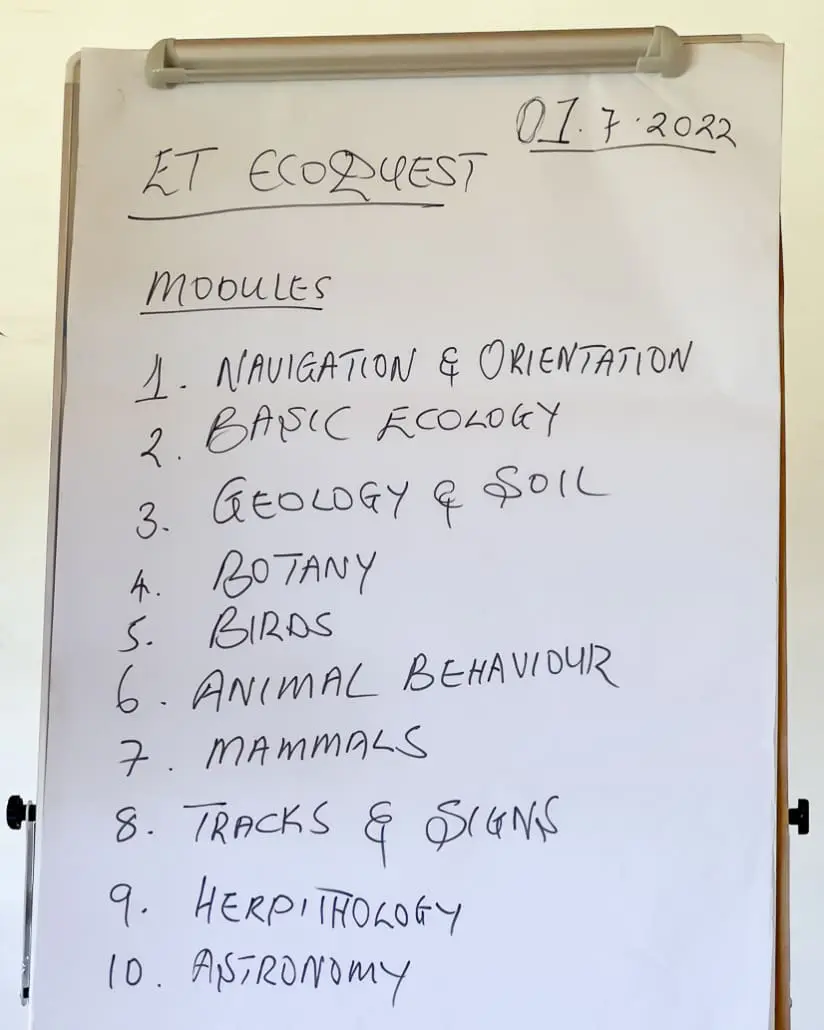 01.7.2022
ET ECOQUEST
MODULES
1. NAVIGATION & ORIENTATION
2. BASIC ECOLOGY
3. GEOLOGY & SOIL
4. BOTANY
5. BIRDS
6. ANIMAL BEHAVIOUR
7. MAMMALS
8. TRACKS & SIGNS
9. HERPITHOLOGY
10. ASTRONOMY